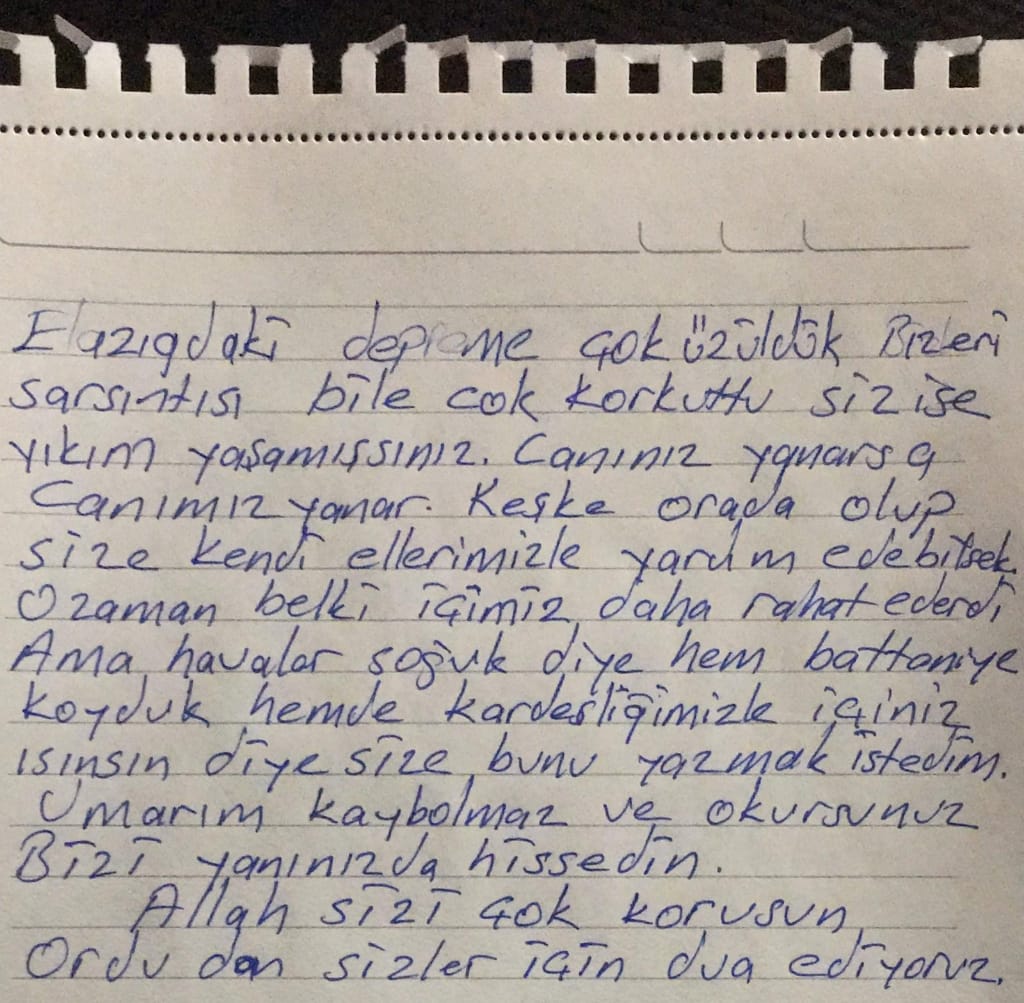 Elazıgdaki depreme çok üzüldük Bizleri
sarsıntısı bile cok korkuttu siz ise
yıkım yaşamışsınız. Canınız yanarsa
Canımız yanar. Keşke orada olup
size kendi ellerimizle yardım edebilsek.
O zaman belki içimiz daha rahat ederdi
Ama havalar soğuk diye hem battaniye
koyduk hemde kardeşliğimizle içiniz
ısınsın diye size bunu yazmak istedim.
Umarım kaybolmaz ve okursunuz
Bizi yanınızda hissedin.
Allah sizi çok korusun
Ordu dan sizler için dua ediyoruz.